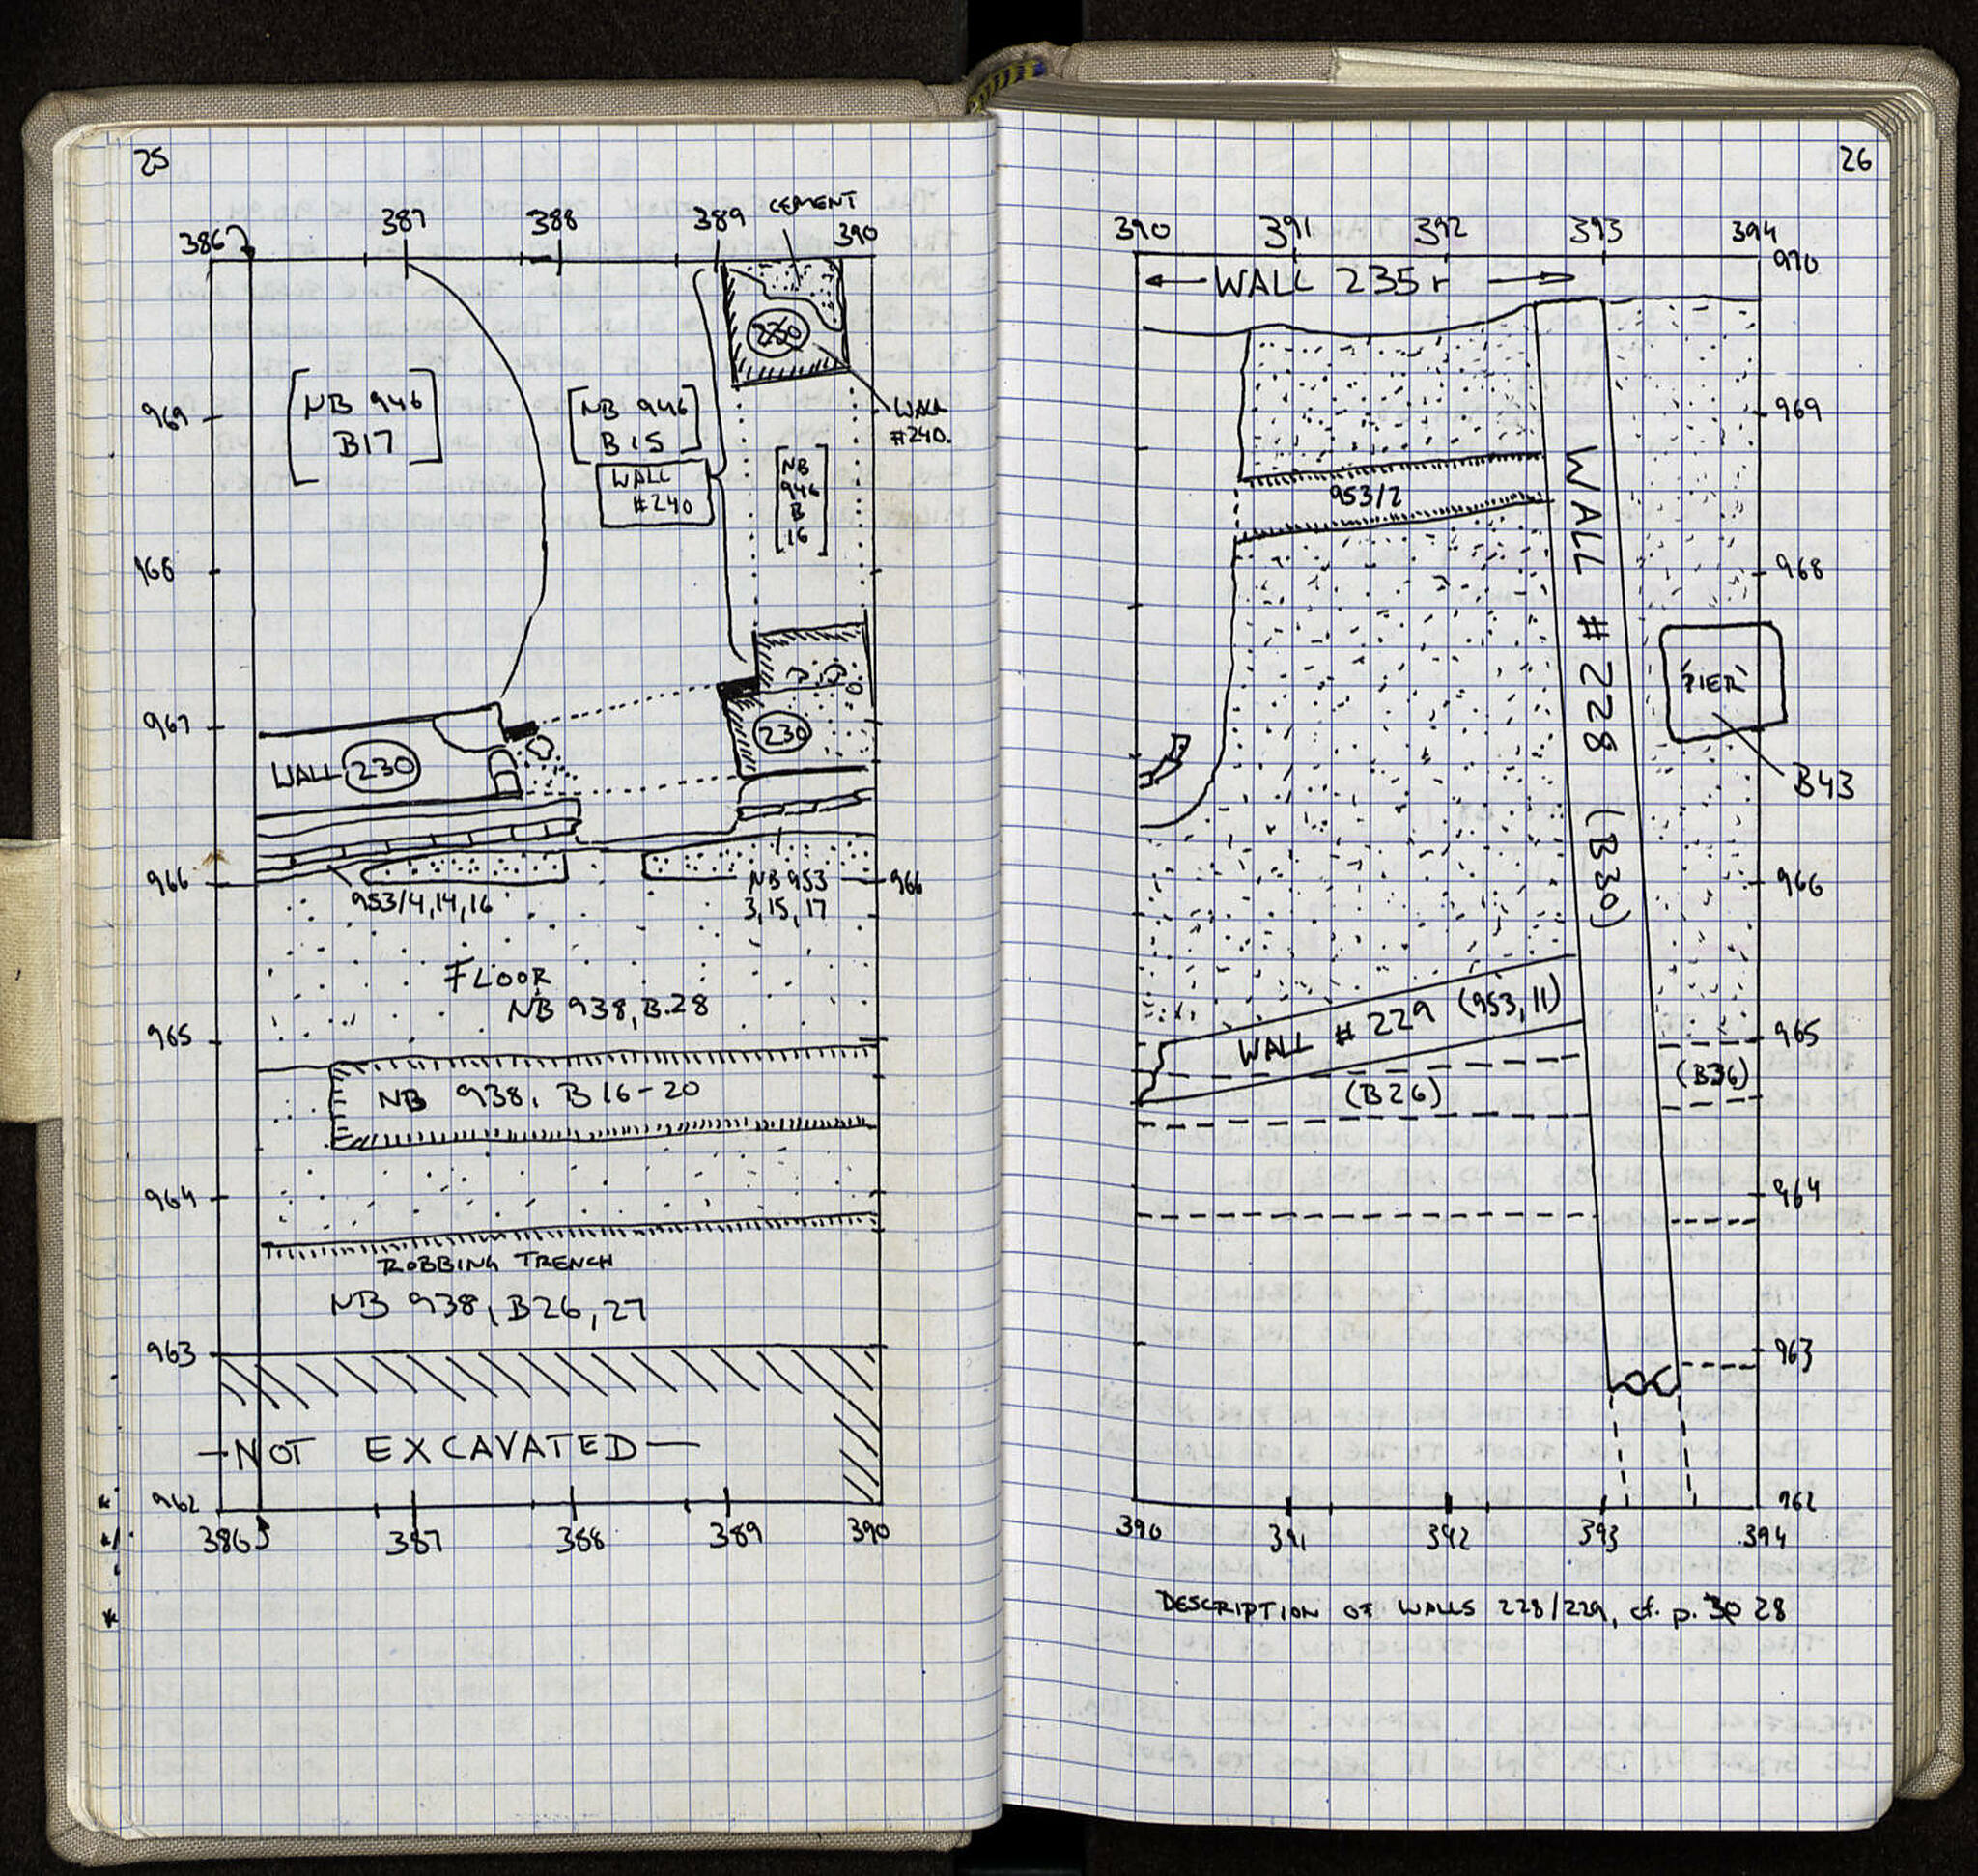 25
387
388
389
CEMENT
386
390
230
[NB 946
B17]
[NB 946
B15]
WALL
#240
[NB
946
B
16]
WALL
#240.
969
968
967
WALL 230
230
966
953/4,14,16
NB 953
3,15,17
966
FLOOR
NB 938, B.28
965
NB 938, B16-20
964
ROBBING TRENCH
NB 938, B26,27
963
-NOT EXCAVATED-
962
386
387
388
389
390
26
390
391
392
393
394
970
← WALL 235r →
969
953/2
WALL #228 (B30)
968
PIER
B43
966
WALL # 229 (953,11)
965
(B26)
(B36)
964
963
962
390
391
392
393
394
DESCRIPTION OF WALLS 228/229, cf. p. 30 28